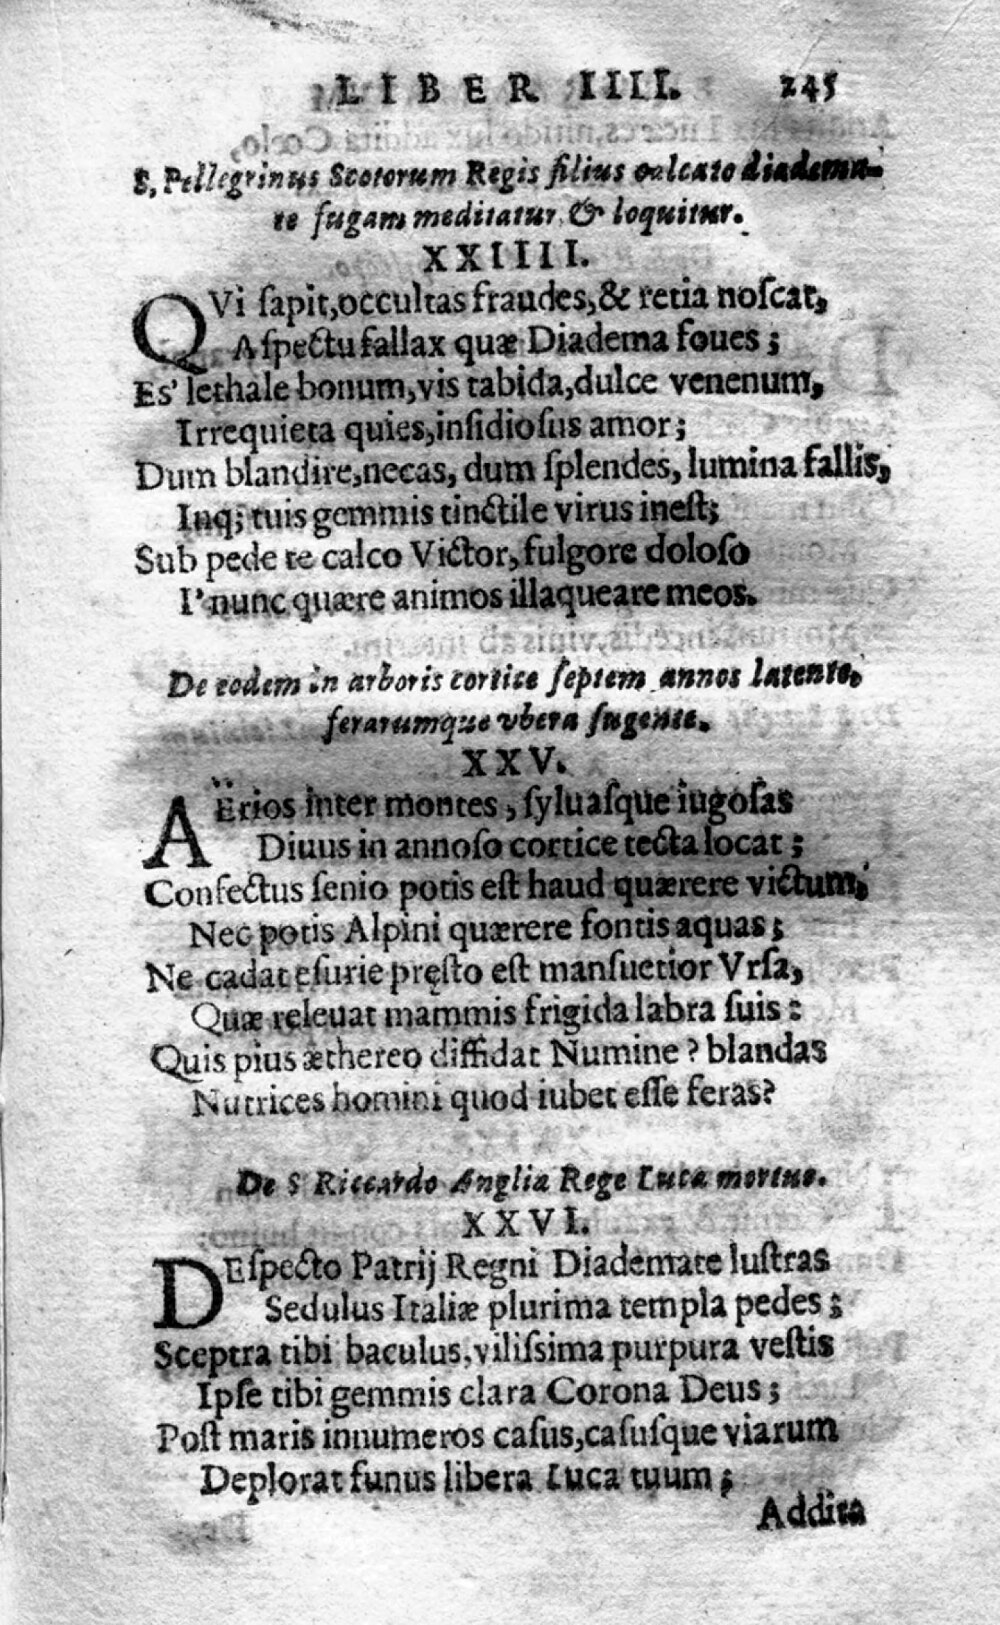 LIBER IIII. 245
S. Pellegrinus Scotorum Regis filius calcato diadema-
te fugam meditatur & loquitur.
XXIIII.
QVi sapit, occultas fraudes, & retia noscat,
Aspectu fallax quæ Diadema foues;
Es' lethale bonum, vis tabida, dulce venenum,
Irrequieta quies, insidiosus amor;
Dum blandire, necas, dum splendes, lumina fallis,
Inq; tuis gemmis tinctile virus inest;
Sub pede te calco Victor, fulgore doloso
I' nunc quære animos illaqueare meos.
De eodem in arboris cortice septem annos latente,
ferarumque vbera sugente.
XXV.
AËrios inter montes, syluasque iugosas
Diuus in annoso cortice tecta locat;
Confectus senio potis est haud quærere victum,
Nec potis Alpini quærere fontis aquas;
Ne cadat esurie pręsto est mansuetior Vrsa,
Quæ releuat mammis frigida labra suis:
Quis pius æthereo diffidat Numine? blandas
Nutrices homini quod iubet esse feras?
De S Riccardo Anglia Rege Luca mortuo.
XXVI.
DEspecto Patrij Regni Diademate lustras
Sedulus Italiæ plurima templa pedes;
Sceptra tibi baculus, vilissima purpura vestis
Ipse tibi gemmis clara Corona Deus;
Post maris innumeros casus, casusque viarum
Deplorat funus libera Luca tuum;
Addita